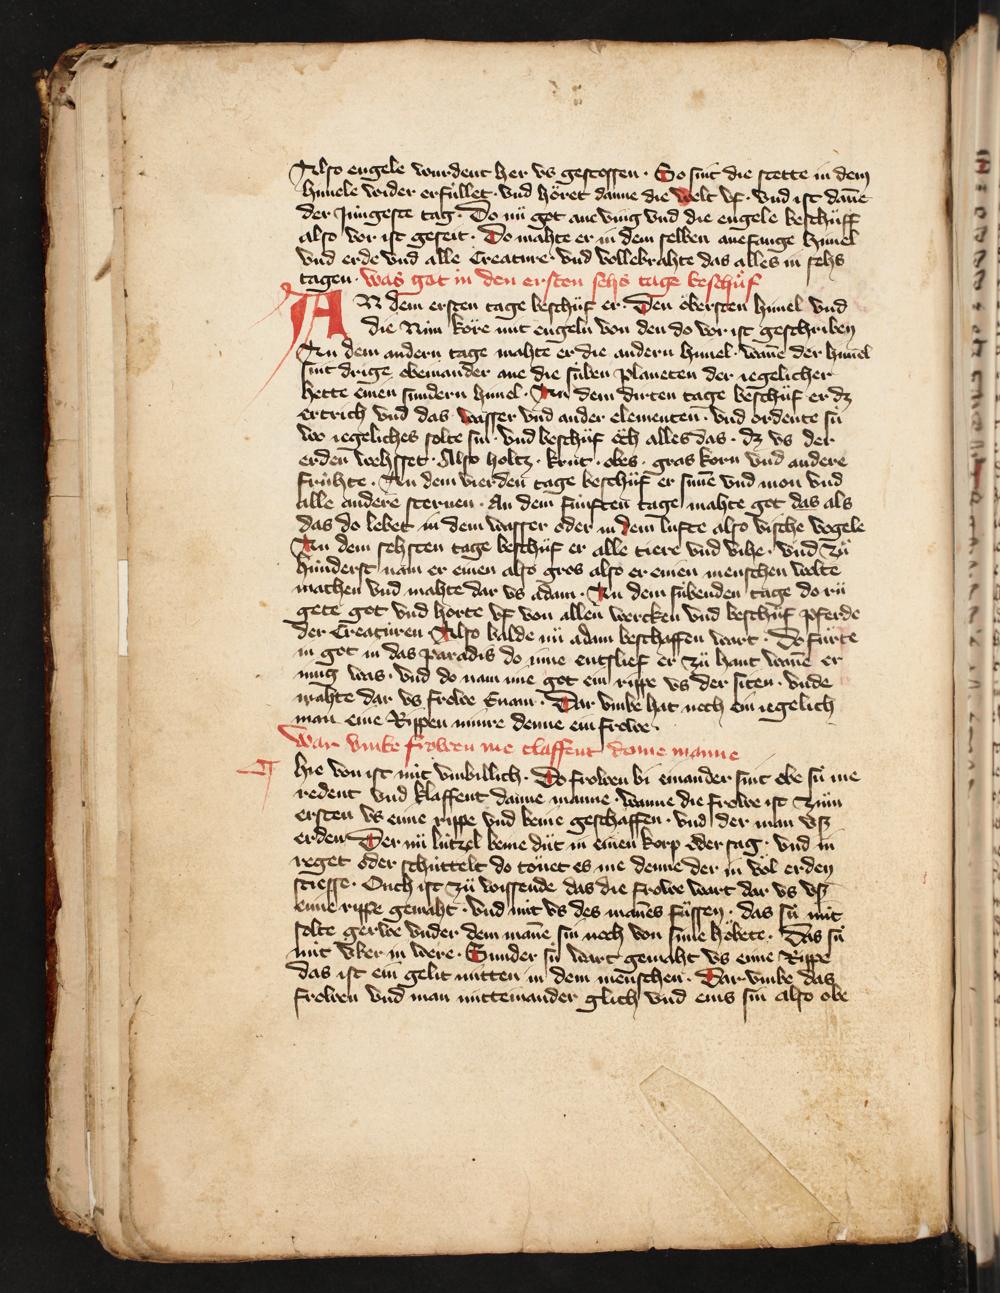 Also engele wurdent her vs gestossen · So sint die stette in dem
himele wider erfüllet · vnd höret danne die welt vf · vnd ist dañe
der Jungeste tag · Do nü got ane ving vnd die engele beschüff
also vor ist geseit · Do mahte er in dem selben anefange himel
vnd erde vnd alle Creature · vnd vollebrahte das alles in sehs
tagen · was got in den ersten sehs tage beschüf
AN dem ersten tage beschüf er · Den öbersten himel vnd
die Nün köre mit engeln von den do vor ist geschriben
An dem andern tage mahte er die andern himel · wañe der himel
sint drige obenander ane die süben planeten der iegelicher
hette einen sundern himel · An dem dirten tage beschüf er dz
ertrich vnd das wasser vnd ander elementen · vnd ordente sü
wo iegeliches solte sin · vnd beschüf öch alles das · dz vs der
erden wehsset · Also holtz · krüt · obes · gras korn vnd andere
frühte · An dem vierden tage beschüf er suñe vnd mon vnd
alle andere sternen · An dem fünften tage mahte got das als
das do lebet in dem wasser oder in dem lufte also vische vogele
An dem sehsten tage beschüf er alle tiere vnd vihe · vnd zü
hünderst nam er einen also gros also er einen menschen wolte
machen vnd mahte dar vs adam · An dem sübenden tage do rü
gete got vnd horte vf von allen wercken vnd beschüf pferde
der Creatüren Also balde nü adam beschaffen wart · Do fürte
in got in das paradis do inne entslief er zü hant wañe er
müg was · vnd do nam ime got ein rippe vs der siten · vnde
mahte dar vs frowe Euam · Dar vmbe hat noch ein iegelich
man eine Rippen minre denne ein frowe ·
War vmbe frowen me claffent denne manne
hie von ist nüt vnbillich · Do frowen bi einander sint obe sü me
redent vnd klaffent danne manne · wanne die frowe ist zum
ersten vs eime rippe vnd beine geschaffen · vnd der man vsz
erden Der nü lützel beine düt in einen korp oder sag · vnd in
reget oder schüttelt do tönet es me denne der in vol erden
stiesse · Ouch ist zü wissende das die frowe wart dar vs vsz
eime rippe gemaht · vnd nüt vs des mañes füssen · das sü nüt
solte gerwe vnder dem mañe sin noch von sime höbete · Das sü
nüt vber in were · Sunder sü wart gemaht vs eime Rippe
das ist ein gelit mitten in dem menschen · Dar vmbe das
frowen vnd man mitteinander glich vnd eins sin also obe